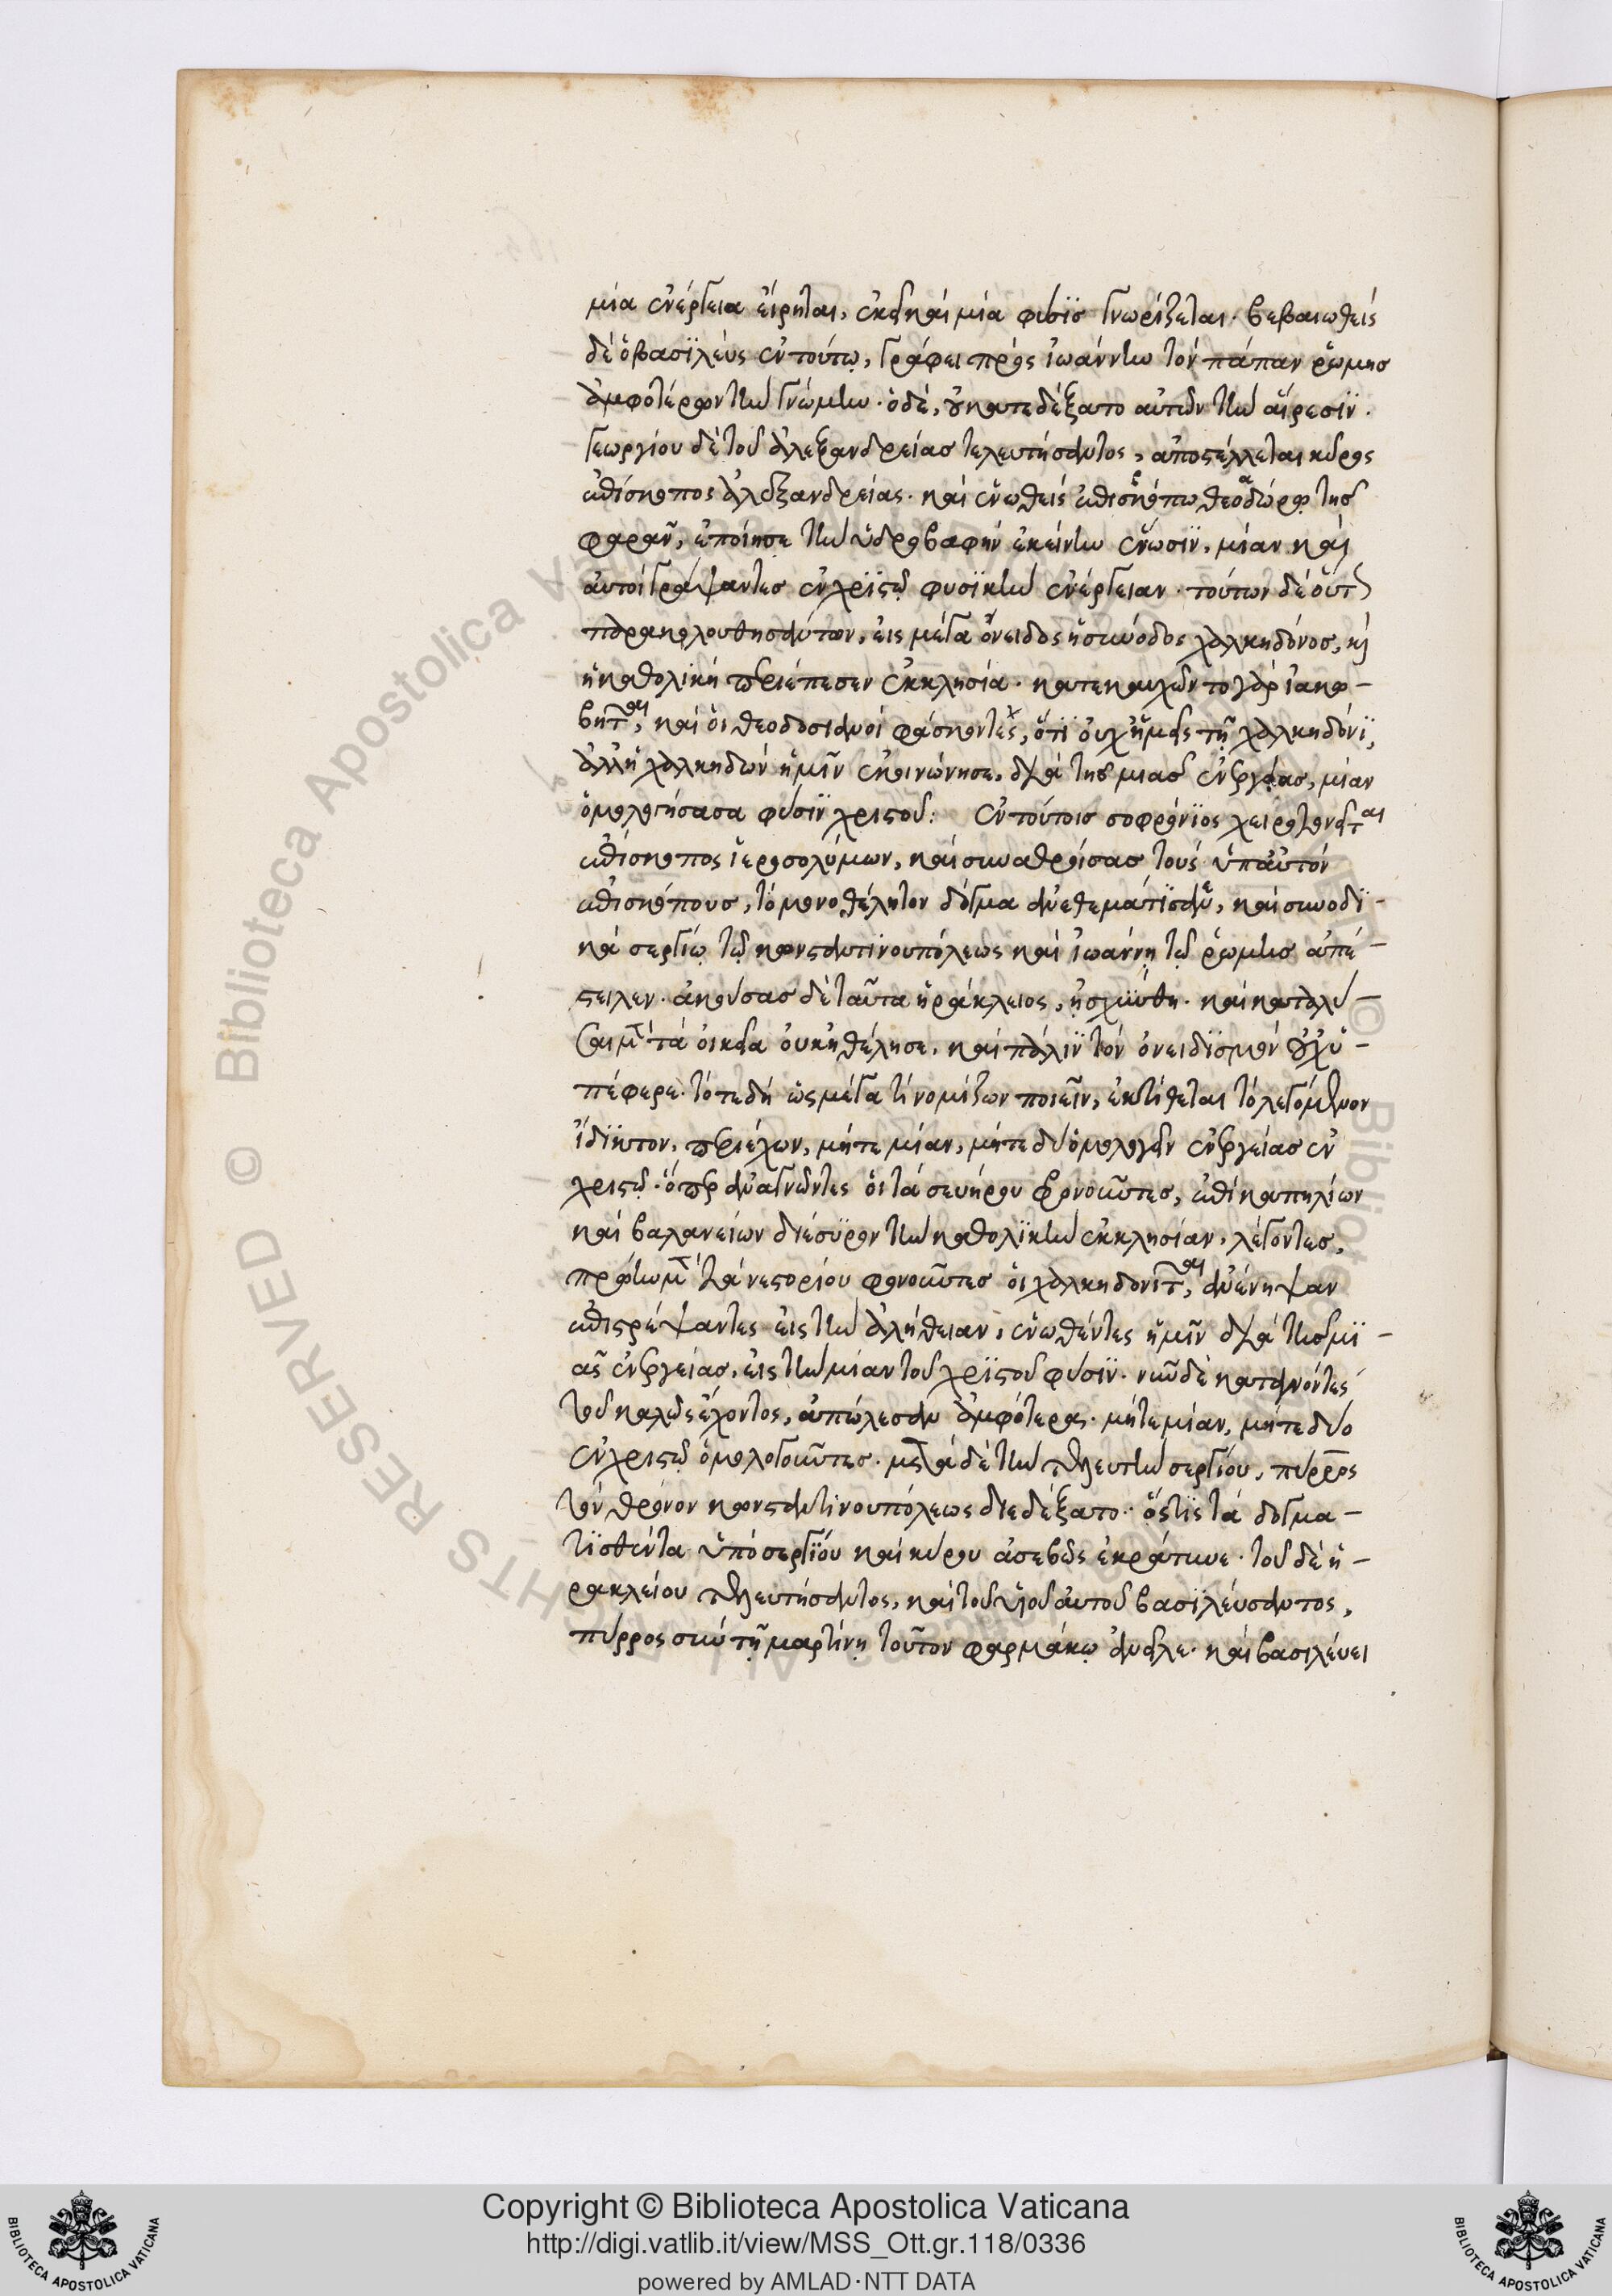 μία ἐνέργεια εἴρηται, ἐκεῖ καὶ μία φύσϊς γνωρίζεται· βεβαιωθεὶς
δὲ ὁ βασϊλεὺς ἐν τούτῳ, γράφει πρὸς ἰωάννην τὸν πάπαν ῥώμησ
ἀμφοτέρων τὴν γνώμην· ὁ δὲ, οὐ κατεδέξατο αὐτῶν τὴν αἵρεσϊν·
Γεωργίου δὲ τοῦ ἀλεξανδρείασ τελευτήσαντος, ἀποστέλλεται κύρος
ἐπίσκοπος ἀλεξανδρείας· καὶ ἑνωθεὶς ἐπισκόπω θεοδώρῳ τῆσ
φαρᾶν, ἐποίησε τὴν ὑδροβαφῆ ἐκείνην ἕνωσϊν, μίαν καὶ
αὐτοὶ γράψαντεσ ἐν χρϊστῷ φυσϊκὴν ἐνέργειαν· τούτων δὲ οὕτ
παρακολουθησάντων, εἰς μέγα ὄνειδος ἡ σύνοδος χαλκηδόνοσ, κὶ
ἡ καθολϊκὴ περιέπεσεν ἐκκλησία· κατεκαυχῶντο γὰρ ἰακω-
βῖται, καὶ ὁι θεοδοσιανοὶ φάσκοντες, ὅτϊ οὐχ ἡμεῖς τῇ χαλκηδόνϊ,
ἀλλ' ἡ χαλκηδὼν ἡμῖν ἐκοινώνησε, διὰ τῆσ μιᾶσ ἐνεργείασ, μίαν
ὁμολογήσασα φύσϊν χριστοῦ: Ἐν τούτοισ σοφρόνϊος χειροτονεῖται
ἐπίσκοπος ἱεροσολύμων, καὶ συναθροίσασ τοὺς ὑπ' αὐτὸν
ἐπισκόπουσ, τὸ μονοθέλητον δόγμα ἀνεθεμάτϊσεν, καὶ συνοδϊ-
κὰ σεργίῳ τῷ κωνσταντϊνουπόλεως καὶ ἰωάννῃ τῷ ῥώμησ ἀπέ-
στειλεν· ἀκούσασ δὲ ταῦτα ἡράκλειος, ᾐσχύνθη· καὶ καταλῦ-
σαι μὲν τὰ οἰκεῖα οὐκ ἠθέλησε, καὶ πάλϊν τὸν ὀνειδϊσμὸν οὐχ ὑ-
πέφερε· τότε δὴ ὡς μέγα τϊ νομίζων ποιεῖν, ἐκτίθεται τὸ λεγόμενον
ἴδϊκτον, περιέχων, μήτε μίαν, μήτε δύο ὁμολογεῖν ἐνεργείασ ἐν
χριστῷ· ὅπερ ἀναγνῶντες ὁι τὰ σευήρου φρονοῦντεσ, ἐπὶ καπηλίων
καὶ βαλανείων διέσϋρον τὴν καθολϊκὴν ἐκκλησίαν, λέγοντεσ,
πρώην μὲν τὰ νεστορίου φρονοῦντεσ ὁι χαλκηδονῖται, ἀνένηψαν
ἐπιστρέψαντες εἰς τὴν ἀλήθειαν, ἑνωθέντες ἡμῖν διὰ τῆσ μϊ-
ᾶς ἐνεργείασ, εἰς τὴν μίαν τοῦ χρϊστοῦ φύσϊν· νῦν δὲ καταγνόντες
τοῦ καλῶς ἔχοντος, ἀπώλεσαν ἀμφότερα· μήτε μίαν, μήτε δύο
ἐν χριστῷ ὁμολογοῦντεσ· μετὰ δὲ τὴν τελευτὴν σεργίου, πύρρος
τὸν θρόνον κωνσταντϊνουπόλεως διεδέξατο· ὅστϊς τὰ δογμα-
τϊσθέντα ὑπὸ σεργϊου καὶ κύρου ἀσεβῶς ἐκράτυνε· τοῦ δὲ ἡ-
ρακλείου τελευτήσαντος, καὶ τοῦ ὑιοῦ αὐτοῦ βασϊλεύσαντος,
πύρρος σὺν τῇ μαρτίνῃ τοῦτον φαρμάκῳ ἀνεῖλε· καὶ βασιλεύει
Copyright © Biblioteca Apostolica Vaticana
http://digi.vatlib.it/view/MSS_Ott.gr.118/0336
powered by AMLAD·NTT DATA
BIBLIOTECA APOSTOLICA VATICANA
BIBLIOTECA APOSTOLICA VATICANA